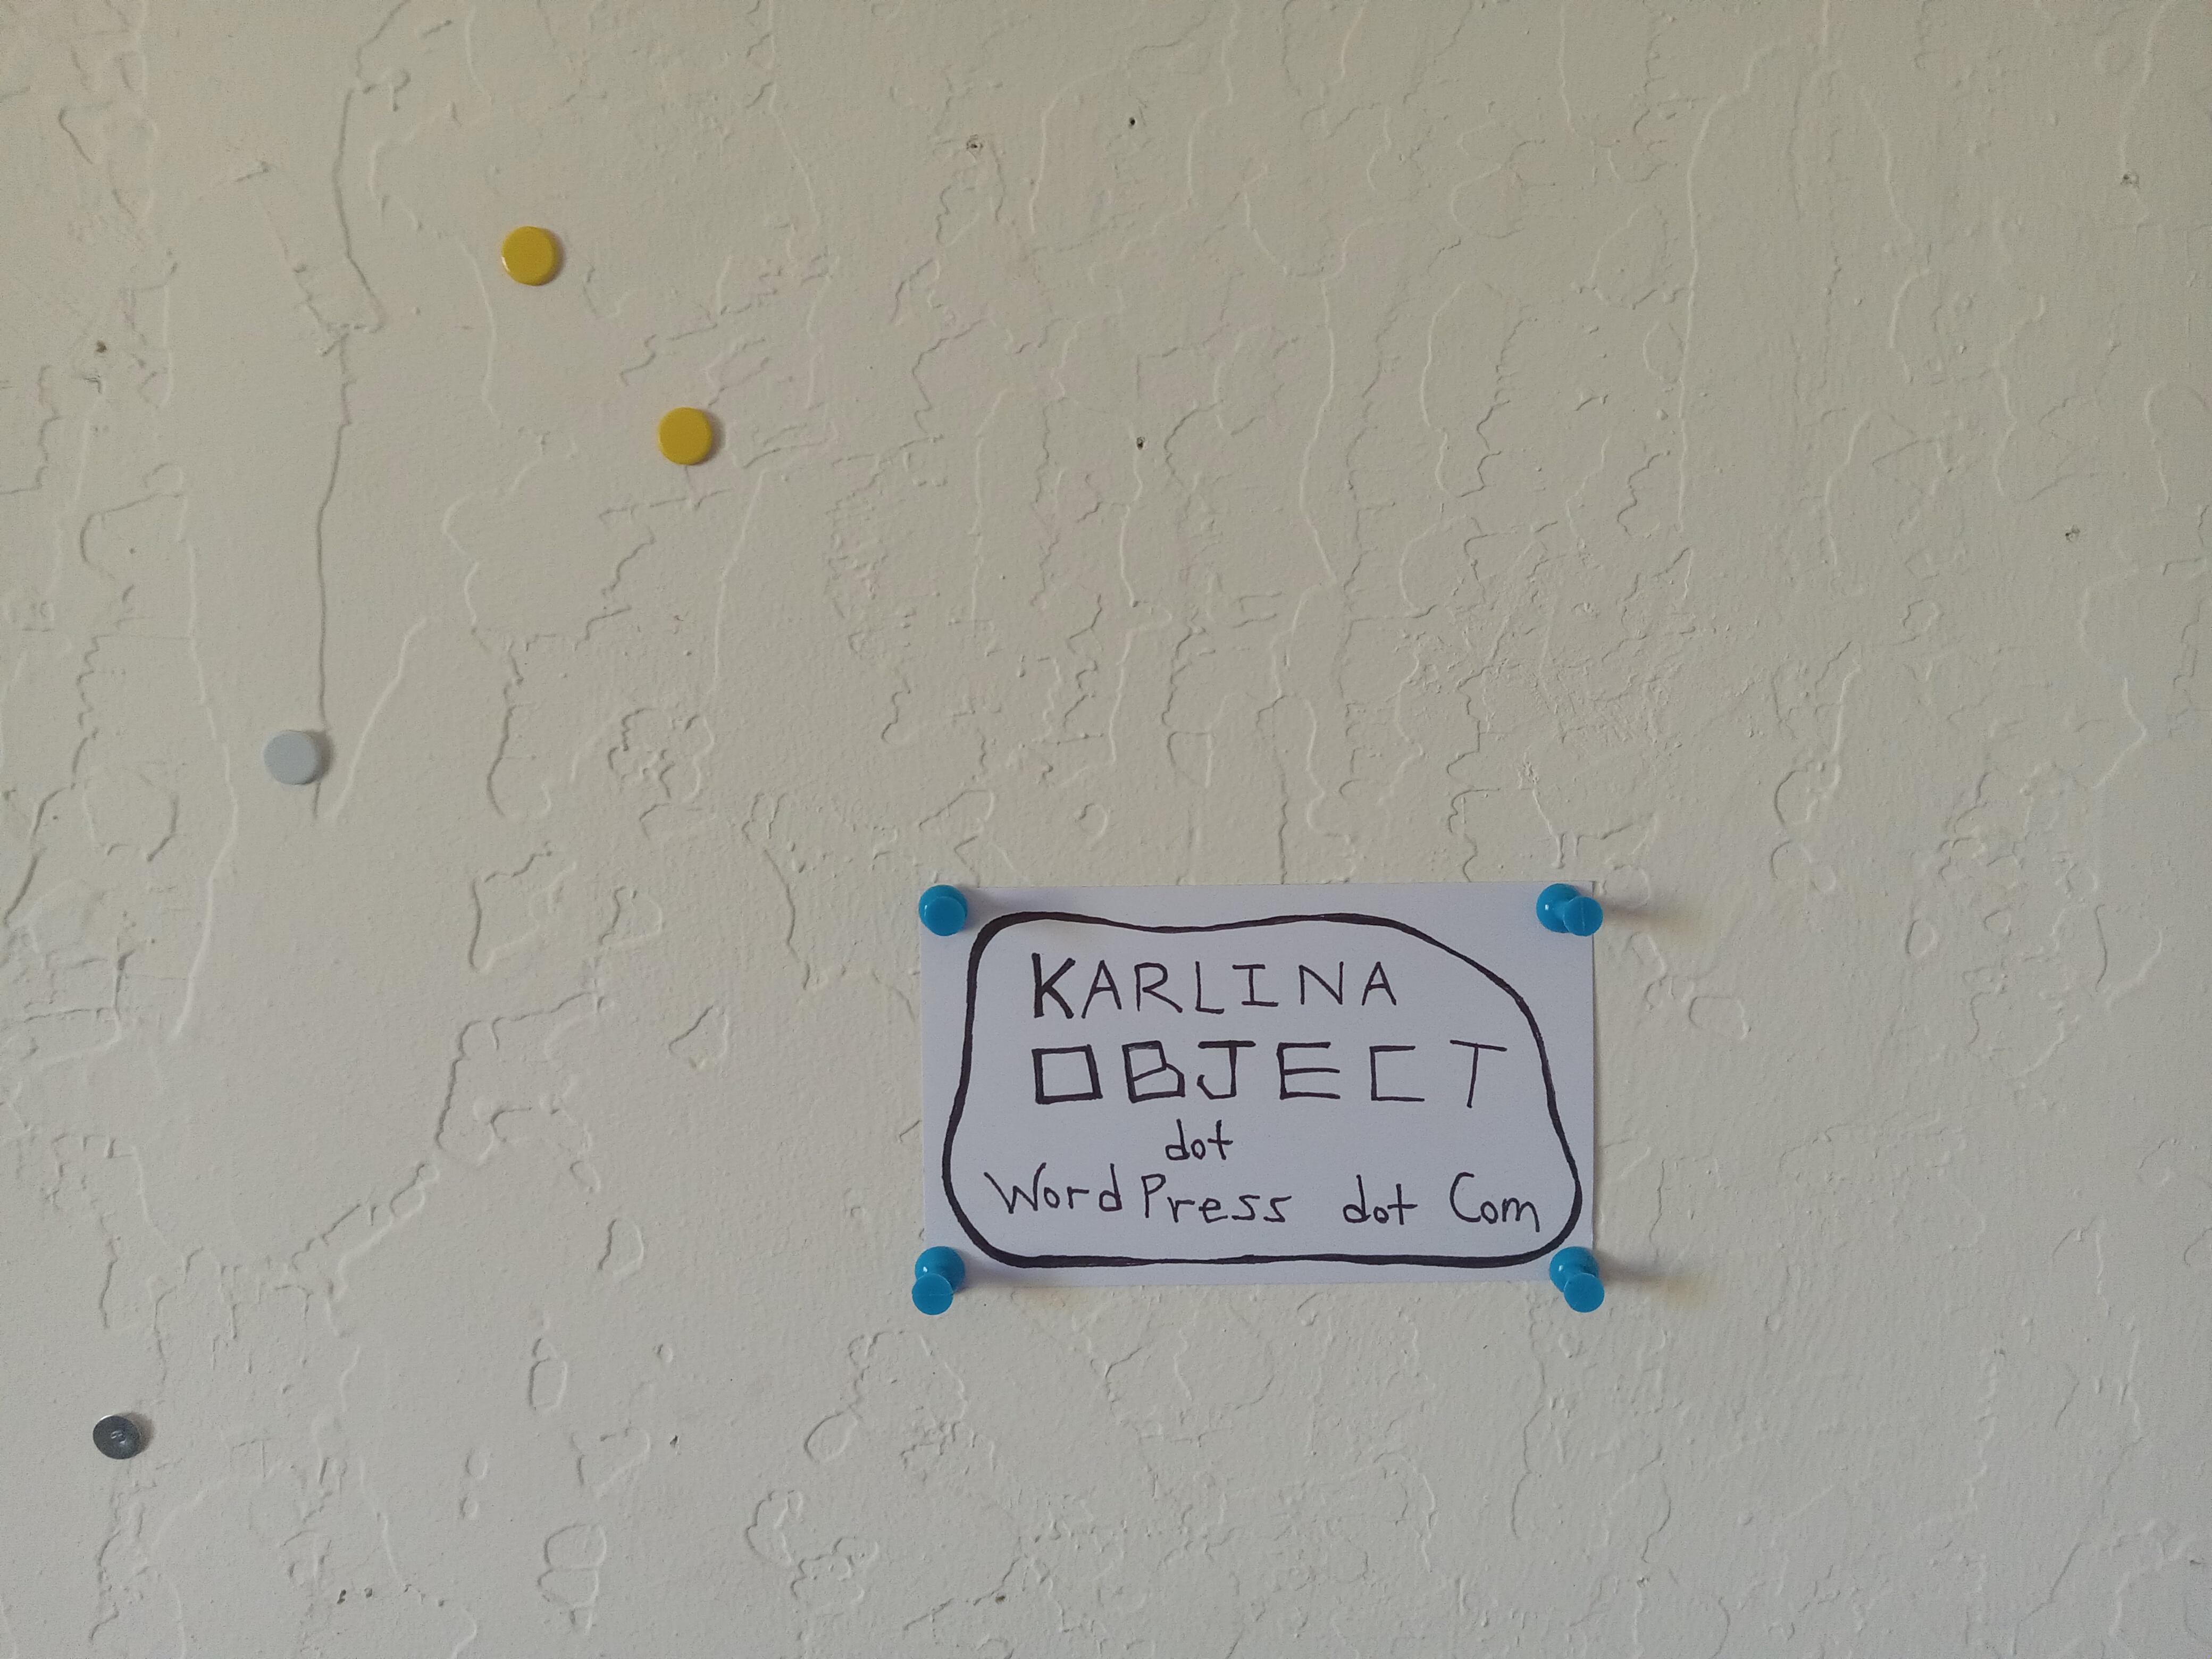 KARLINA
OBJECT
dot
WordPress dot Com